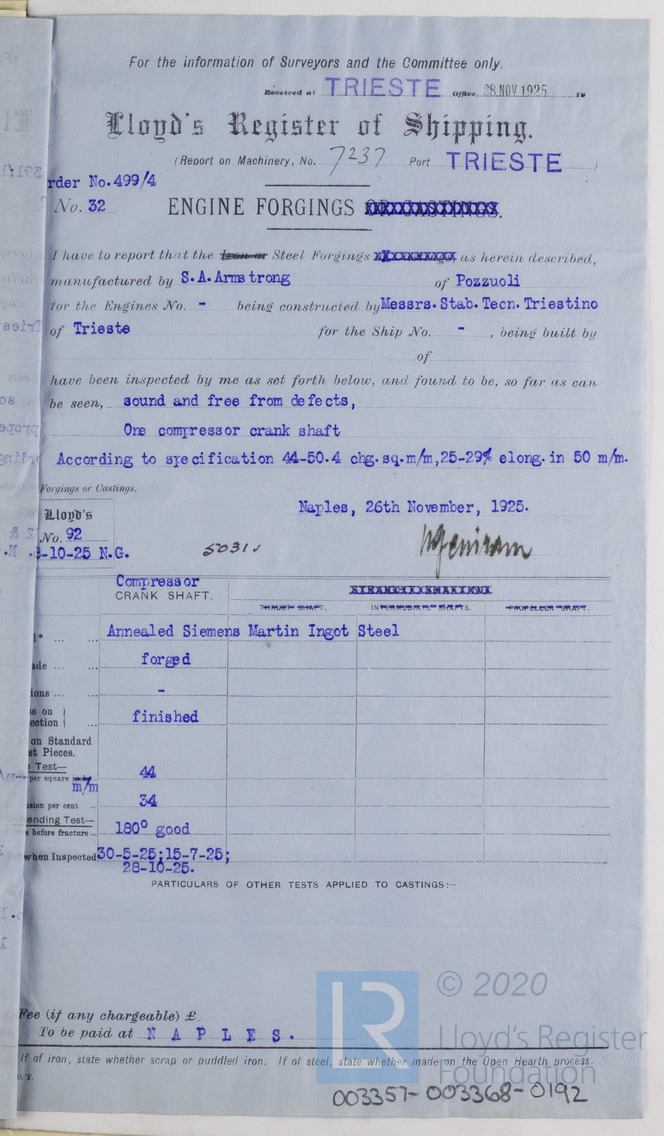 For the information of Surveyors and the Committee only.
Received at TRIESTE Office, 28 NOV 1925 19
Lloyd's Register of Shipping.
(Report on Machinery, No. 7237 Port TRIESTE )
rder No. 499/4
No. 32 ENGINE FORGINGS OR CASTINGS.
I have to report that the Iron or Steel Forgings as herein described,
manufactured by S.A.Armstrong of Pozzuoli
for the Engines No. - being constructed by Messrs. Stab. Tecn. Triestino
of Trieste for the Ship No. - , being built by
of
have been inspected by me as set forth below, and found to be, so far as can
be seen, sound and free from defects,
One compressor crank shaft
According to specification 44-50.4 chg.sq.m/m,25-29% elong.in 50 m/m.
Forgings or Castings.
Lloyd's
No. 92
-10-25 N.G. 5031
Naples, 26th November, 1925.
Compressor
CRANK SHAFT. THRUST SHAFT. INTERMEDIATE SHAFTS. PROPELLER SHAFT.
Annealed Siemens Martin Ingot Steel
ade ... forged
ions ... -
s on
ection finished
on Standard
st Pieces.
Test—
per square inch m/m 44
sion per cent 34
ending Test—
before fracture 180° good
when Inspected 30-5-25;15-7-25;
28-10-25.
PARTICULARS OF OTHER TESTS APPLIED TO CASTINGS:—
Fee (if any chargeable) £
To be paid at NAPLES.
If of iron, state whether scrap or puddled iron. If of steel, state whether made on the Open Hearth process.
O. T.
© 2020
Lloyd's Register
Foundation
LR
003357-003368-0192